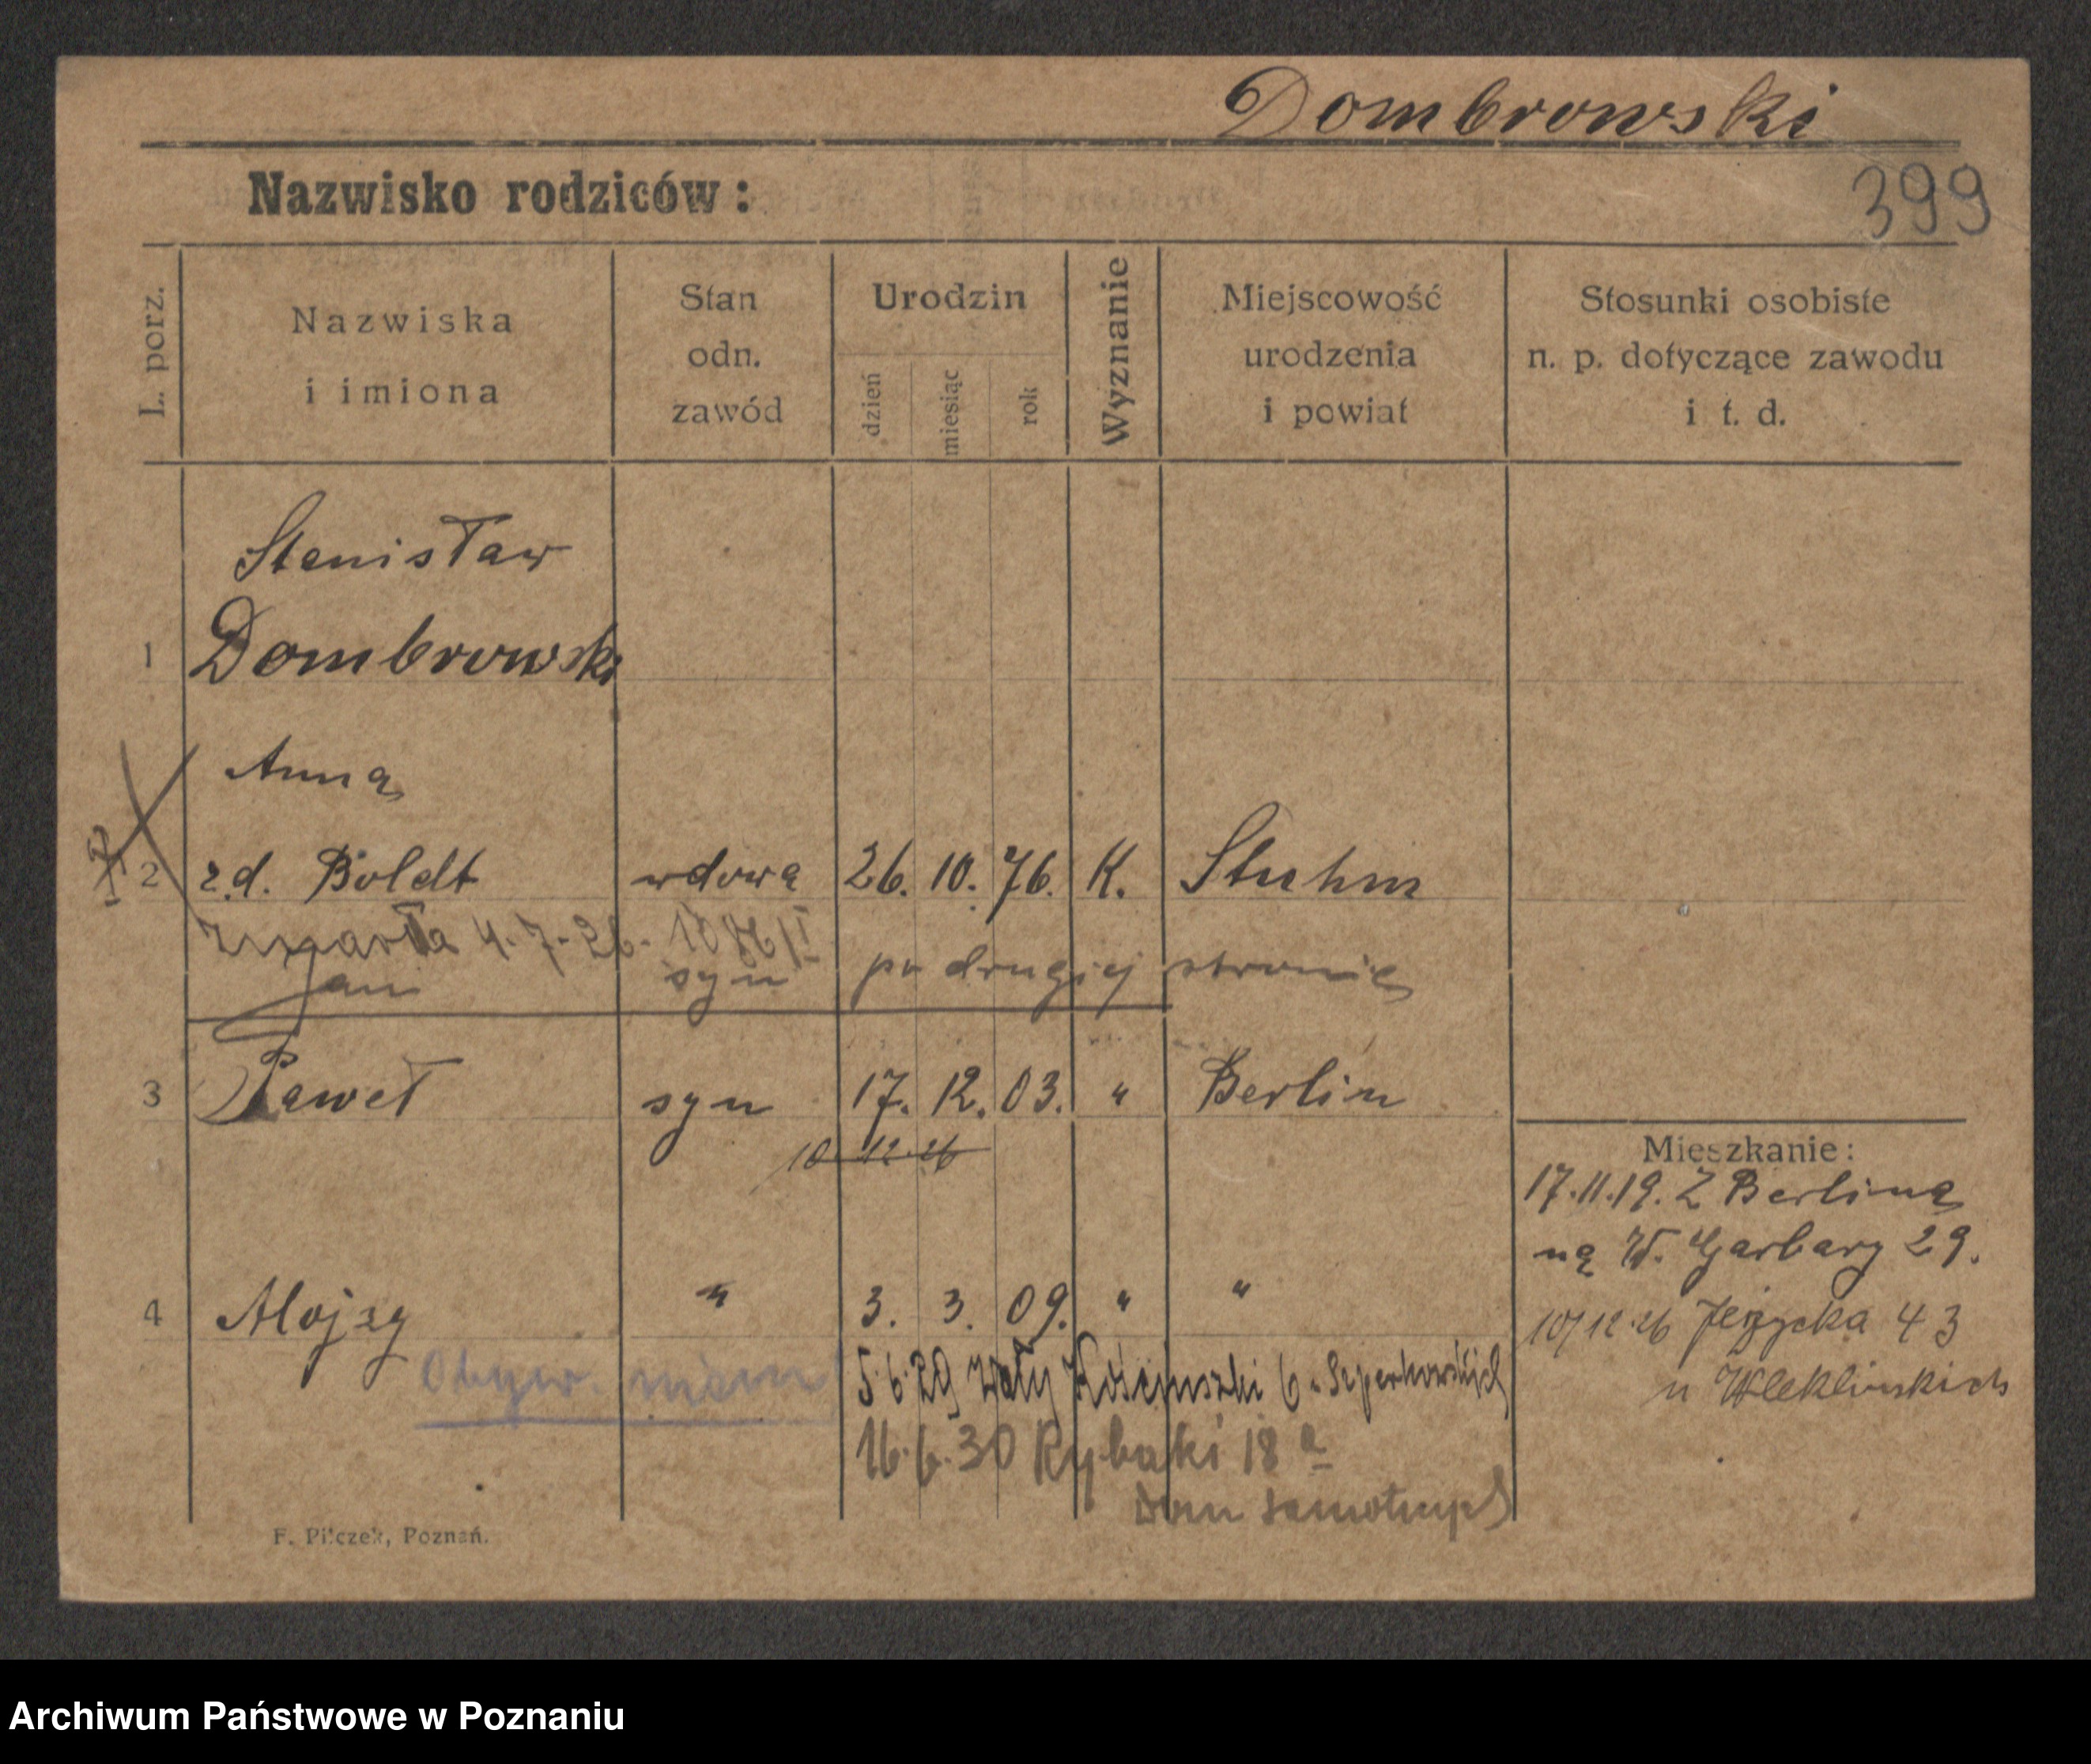 Dombrowski
Nazwisko rodziców:
399
L. porz.
Nazwiska
i imiona
Stan
odn.
zawód
Urodzin
dzień
miesiąc
rok
Wyznanie
Miejscowość
urodzenia
i powiat
Stosunki osobiste
n. p. dotyczące zawodu
i t. d.
Stanisław
1 Dombrowski
Anna
2 z.d. Boldt wdowa 26. 10. 76. K. Stuhm
zmarła 4.7.26.
Jan syn po drugiej stronie
3 Paweł syn 17. 12. 03. " Berlin
10.12.26
4 Alojzy " 3. 3. 09. " "
Obyw. niem
5.6.29 Wały Kościuszki 6
16.6.30 Rybaki 18 a
Dom samotnych
Mieszkanie:
17.11.19. Z Berlina
na W. Garbary 29.
10/12.26 Jeżycka 43
u Wleklinskich
F. Pilczek, Poznań.
Archiwum Państwowe w Poznaniu